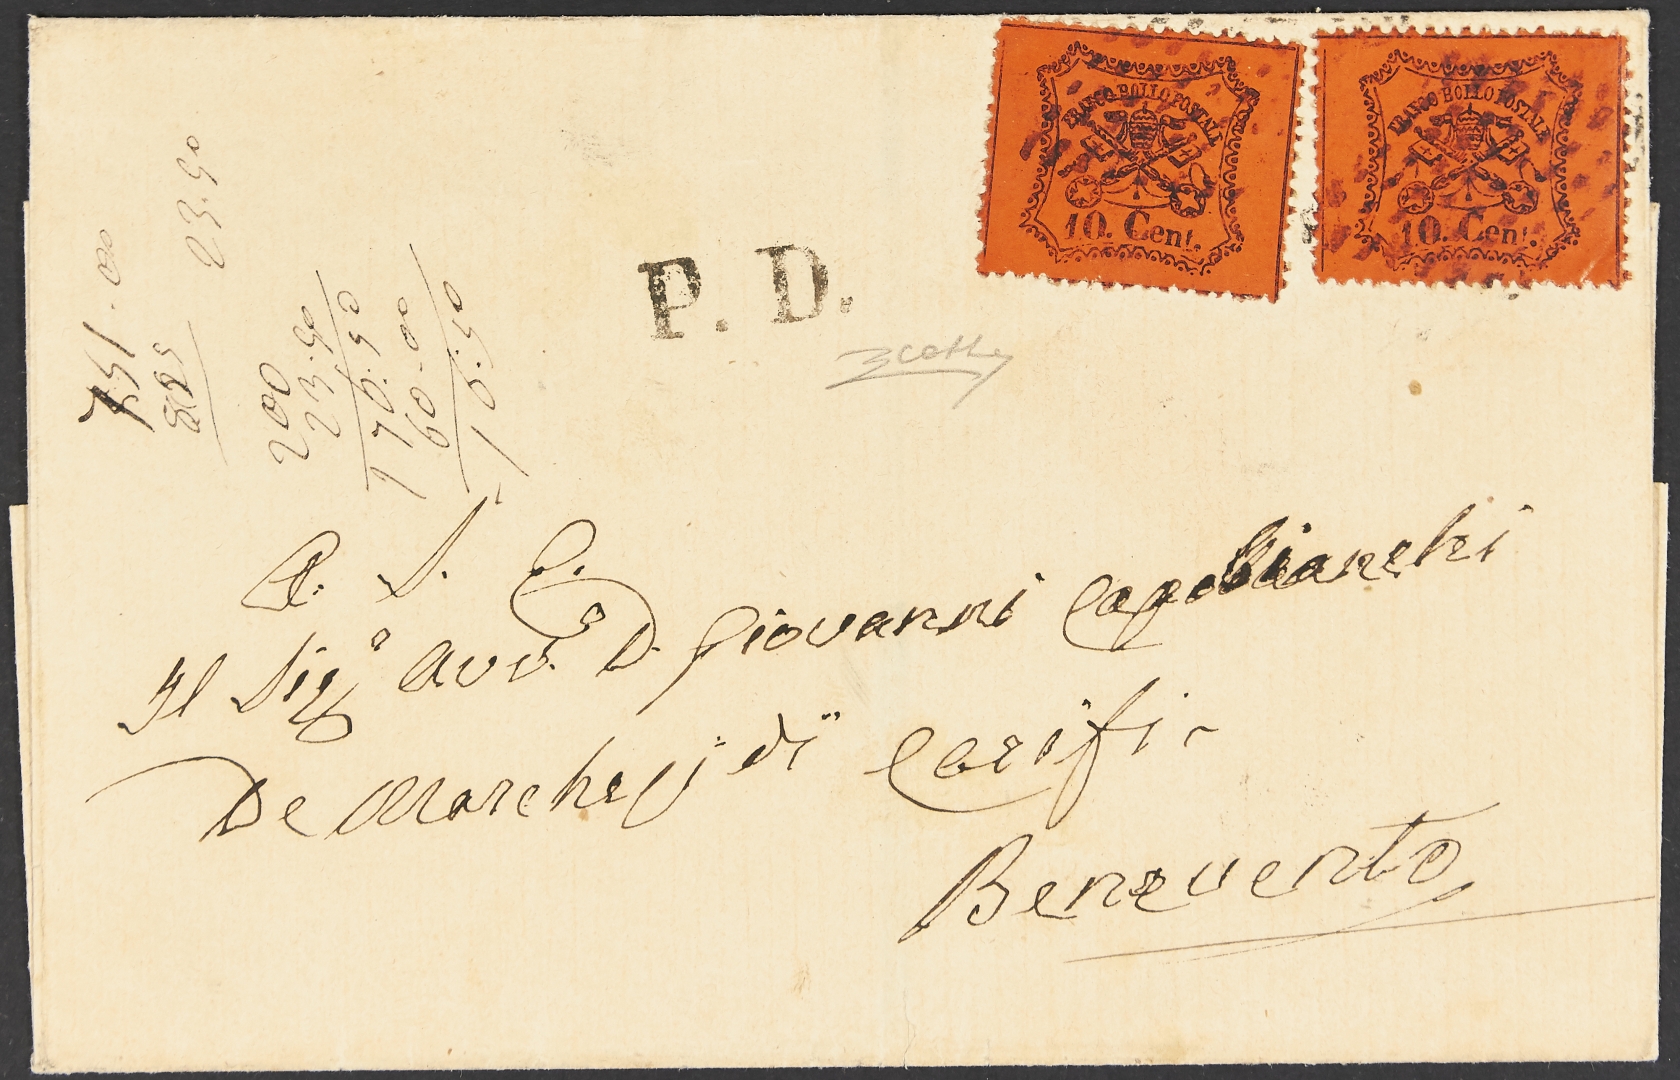 FRANCO BOLLO POSTALE
10. Cent.
FRANCO BOLLO POSTALE
10. Cent.
P. D.
23.90
200
23.90
176.50
60.00
A. S. E.
Il Sigr. Avv. D. Giovanni Capobianchi
De Marchesi di Carifi
Benevento